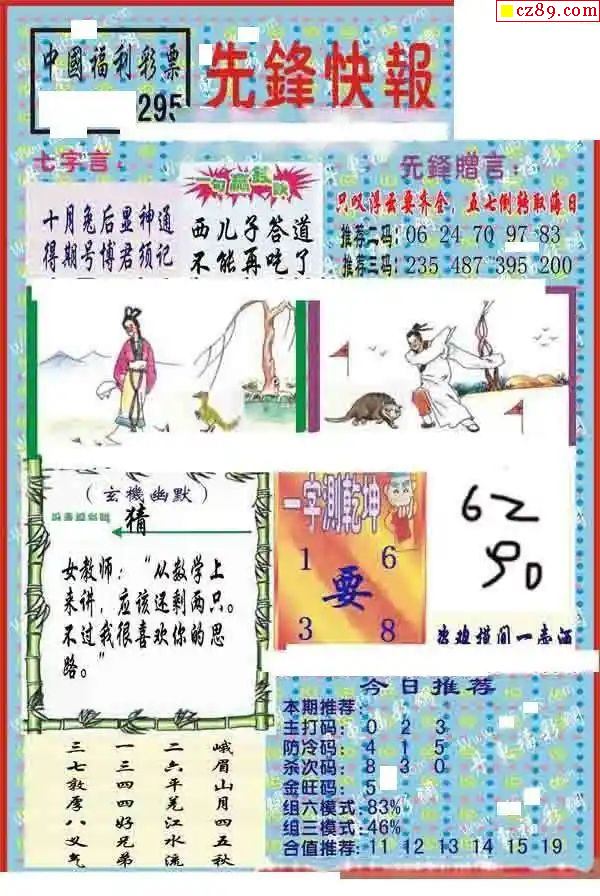 cz89.com
中國福利彩票
295
先鋒快報
七字言:
十月兔后显神通
得期号博君须记
西儿子答道
不能再吃了
先鋒贈言:
只以浮云要齐全，五七倒转取海日
推荐二码: 06 24 70 97 83
推荐三码: 235 487 395 200
(玄機幽默)
猜
女教师："从数学上
来讲，应该还剩两只。
不过我很喜欢你的思
路。"
一字測乾坤
1 6
要
3 8
62
90
今日推荐
本期推荐:
主打码: 0 2 3
防冷码: 4 1 5
杀次码: 8 3 0
金旺码: 5
组六模式: 83%
组三模式: 46%
合值推荐: 11 12 13 14 15 19
峨眉山月四五秋
二六平羌江水流
一三四四好兄弟
三七敦厚八义气